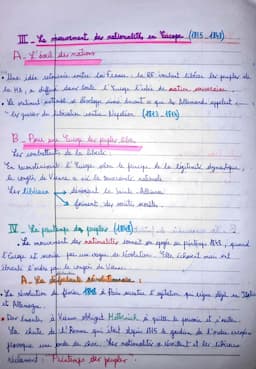 III - Le mouvement des nationalités en Europe (1815-1848)
A - L'éveil des nations
Une idée retournée contre la France : la RF voulant libérer les peuples de
la MA, a diffusé dans toute l'Europe l'idée de nation souveraine.
Le national se développe ainsi durant ce que les Allemands appellent
les guerres de libération contre Napoléon (1813-1815)
B - Pour une Europe des peuples libres
Les combattants de la liberté.
En reconstruisant l'Europe selon le principe de la légitimité dynastique,
le congrès de Vienne a nié la souveraineté nationale.
Les libéraux → dénoncent la Sainte-Alliance
→ forment des sociétés secrètes.
IV - Le printemps des peuples (1848)
Le mouvement des nationalités connaît son apogée au printemps 1848, quand
l'Europe est secouée par une vague de révolutions. Elles échouent mais ont
ébranlé l'ordre du congrès de Vienne.
A - La révolutionnaire :
La révolution de février 1848 à Paris suscite l'agitation qui règne déjà en Italie
et Allemagne.
Des émeutes à Vienne obligent Metternich à quitter le pouvoir et s'exiler.
La chute de l'homme qui était depuis 1815 le gardien de l'ordre européen
provoque une onde de choc. Les nationalités se réveillent et les libéraux
réclament : Printemps des peuples.